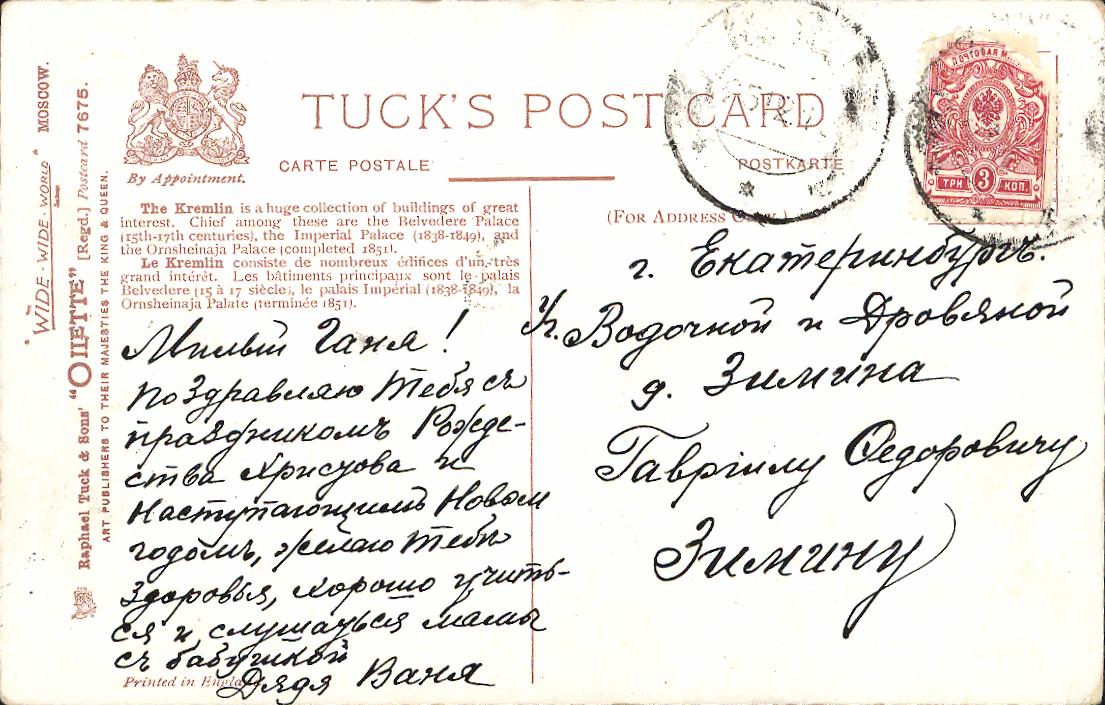 TUCK'S POST CARD
CARTE POSTALE
POSTKARTE
By Appointment.
(FOR ADDRESS
ПОЧТОВАЯ М
ТРИ 3 КОП.
The Kremlin is a huge collection of buildings of great
interest. Chief among these are the Belvedere Palace
(15th-17th centuries), the Imperial Palace (1838-1849), and
the Ornsheinaja Palace (completed 1851).
Le Kremlin consiste de nombreux édifices d'un très
grand intérêt. Les bâtiments principaux sont le palais
Belvedere (15 à 17 siècle), le palais Impérial (1838-1849), la
Ornsheinaja Palate (terminée 1851).
Милый Ганя!
поздравляю тебя съ
праздникомъ Рожде-
ства Христова и
наступающимъ Новым
годомъ, желаю тебѣ
здоровья, хорошо учить-
ся и слушаться мамы
съ бабушкой
Дядя Ваня
Printed in England
г. Екатеринбургъ.
Уг. Водочной и Дровяной
д. Зимина
Гавріилу Ѳедоровичу
Зимину
"WIDE-WIDE-WORLD" MOSCOW.
Raphael Tuck & Sons' "OILETTE" [Regd.] Postcard 7675.
ART PUBLISHERS TO THEIR MAJESTIES THE KING & QUEEN.